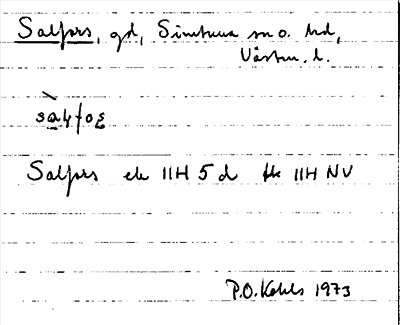 Salfors, gd, Simtuna sn o. hd,
Västm. l.
Salfors ek 11H 5d tk 11H NV
P.O. Kohls 1973